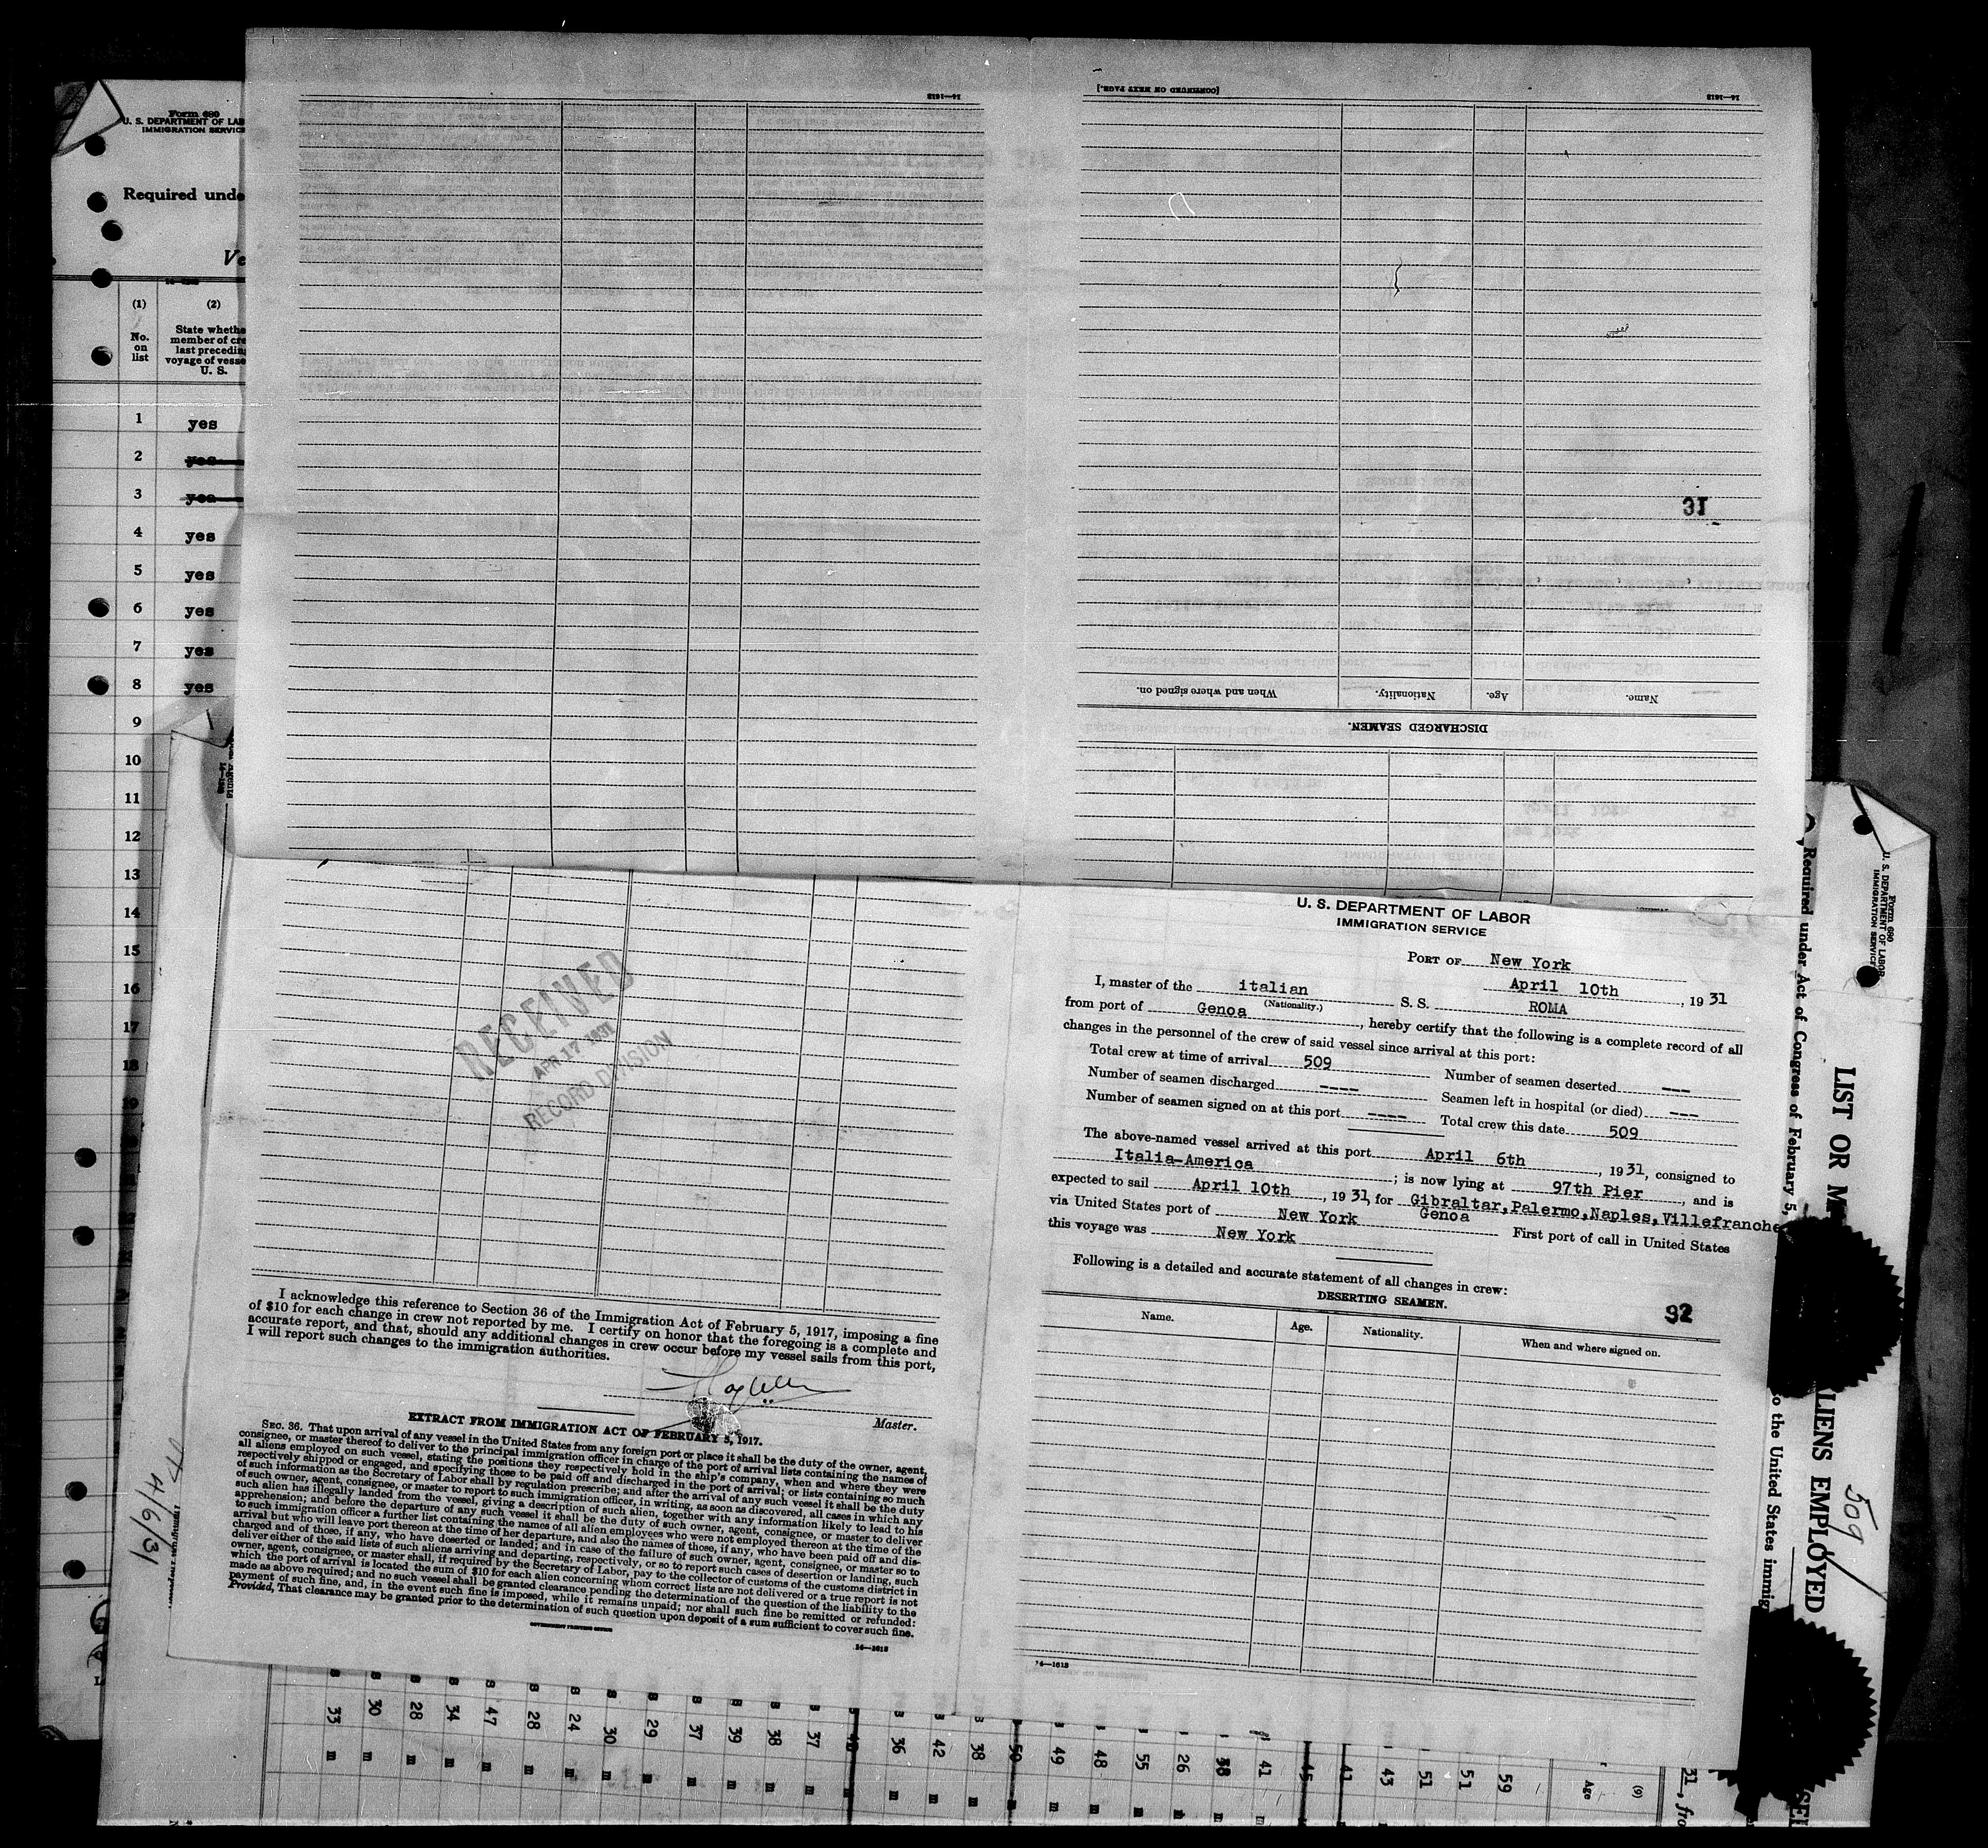 Form 680
U. S. DEPARTMENT OF LAB
IMMIGRATION SERVICE
Required unde
Ve
(1)
(2)
No.
on
list
State whethe
member of cre
last precedin
voyage of vesse
U. S.
1 yes
2 yes
3 yes
4 yes
5 yes
6 yes
7 yes
8 yes
9
10
11
12
13
14
15
16
17
18
19
14—1618
[CONTINUED ON NEXT PAGE.]
14—1618
31
When and where signed on.
Nationality.
Age.
Name.
DISCHARGED SEAMEN.
RECEIVED
APR 17 1931
RECORD DIVISION
I acknowledge this reference to Section 36 of the Immigration Act of February 5, 1917, imposing a fine
of $10 for each change in crew not reported by me. I certify on honor that the foregoing is a complete and
accurate report, and that, should any additional changes in crew occur before my vessel sails from this port,
I will report such changes to the immigration authorities.
Master.
EXTRACT FROM IMMIGRATION ACT OF FEBRUARY 5, 1917.
SEC. 36. That upon arrival of any vessel in the United States from any foreign port or place it shall be the duty of the owner, agent,
consignee, or master thereof to deliver to the principal immigration officer in charge of the port of arrival lists containing the names of
all aliens employed on such vessel, stating the positions they respectively hold in the ship's company, when and where they were
respectively shipped or engaged, and specifying those to be paid off and discharged in the port of arrival; or lists containing so much
of such information as the Secretary of Labor shall by regulation prescribe; and after the arrival of any such vessel it shall be the duty
of such owner, agent, consignee, or master to report to such immigration officer, in writing, as soon as discovered, all cases in which any
such alien has illegally landed from the vessel, giving a description of such alien, together with any information likely to lead to his
apprehension; and before the departure of any such vessel it shall be the duty of such owner, agent, consignee, or master to deliver
to such immigration officer a further list containing the names of all alien employees who were not employed thereon at the time of the
arrival but who will leave port thereon at the time of her departure, and also the names of those, if any, who have been paid off and dis-
charged and of those, if any, who have deserted or landed; and in case of the failure of such owner, agent, consignee, or master so to
deliver either of the said lists of such aliens arriving and departing, respectively, or so to report such cases of desertion or landing, such
owner, agent, consignee, or master shall, if required by the Secretary of Labor, pay to the collector of customs of the customs district in
which the port of arrival is located the sum of $10 for each alien concerning whom correct lists are not delivered or a true report is not
made as above required; and no such vessel shall be granted clearance pending the determination of the question of the liability to the
payment of such fine, and, in the event such fine is imposed, while it remains unpaid; nor shall such fine be remitted or refunded:
Provided, That clearance may be granted prior to the determination of such question upon deposit of a sum sufficient to cover such fine.
GOVERNMENT PRINTING OFFICE
14—1618
4/6/31
U. S. DEPARTMENT OF LABOR
IMMIGRATION SERVICE
PORT OF New York
April 10th, 1931
I, master of the italian S. S. ROMA
(Nationality.)
from port of Genoa, hereby certify that the following is a complete record of all
changes in the personnel of the crew of said vessel since arrival at this port:
Total crew at time of arrival 509
Number of seamen deserted ---
Number of seamen discharged ----
Seamen left in hospital (or died) ---
Number of seamen signed on at this port ----
Total crew this date 509
The above-named vessel arrived at this port April 6th, 1931, consigned to
Italia-America; is now lying at 97th Pier, and is
expected to sail April 10th, 1931, for Gibraltar,Palermo,Naples,Villefranche
Genoa
via United States port of New York First port of call in United States
this voyage was New York
Following is a detailed and accurate statement of all changes in crew:
DESERTING SEAMEN.
32
Name.
Age.
Nationality.
When and where signed on.
14—1618
Form 680
U. S. DEPARTMENT OF LABOR
IMMIGRATION SERVICE
Required under Act of Congress of February 5,
to the United States immig
LIST OR M
LIENS EMPLOYED
509
33 30 28 34 47 28 24 30 29 37 39 38 37 36 42 38 50 49 48 55 26 38 41 45 41 43 51 51 59
m m m m m m m m m m m m m m m m m m m m m
Age
(9)
31, fro